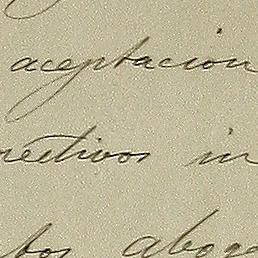 aceptacion
rectivos in
tos aboga